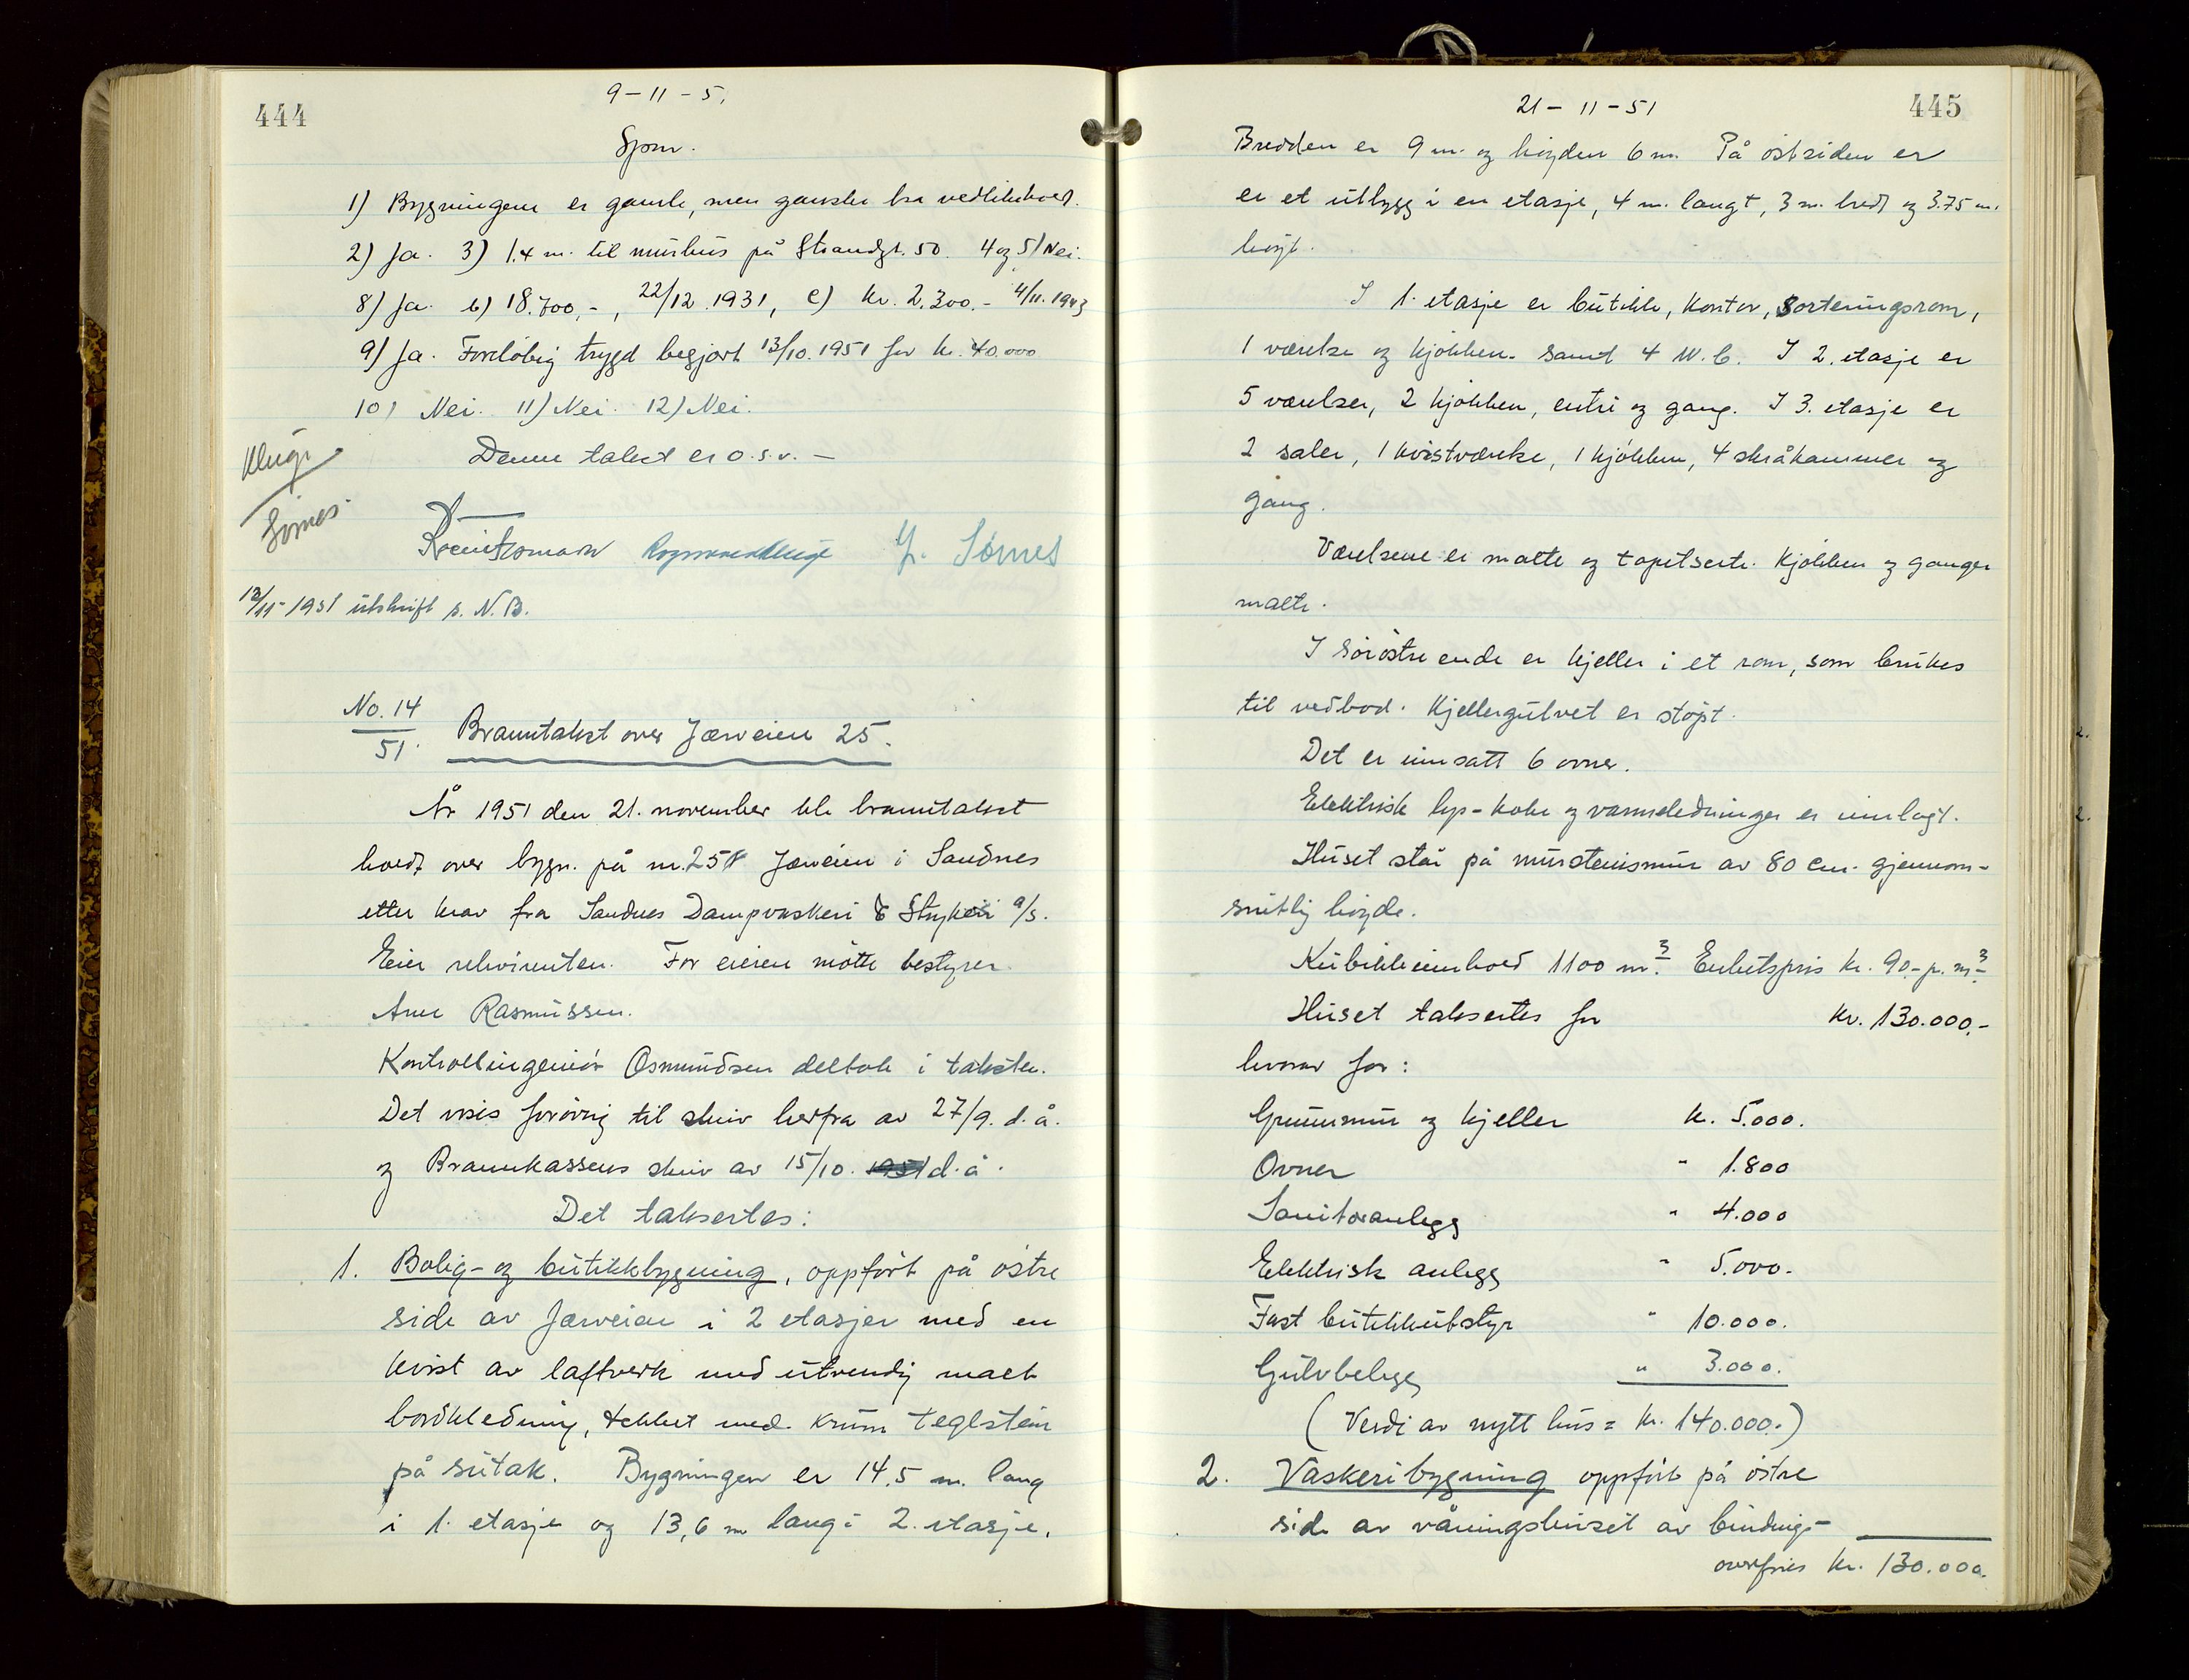 444
9-11-5.
Spm.
1) Bygningene er gamle, men ganske bra vedlikehold.
2) Ja. 3) 1.4 m. til murhus på Strandgt. 50. 4 og 5) Nei.
8) Ja. b) 18.700,-, 22/12.1931, c) kr. 2.300.- 4/11.1943
9) Ja. Foreløbig trygd begjørt 13/10.1951 for kr. 40.000
10) Nei. 11) Nei. 12) Nei.
Denne takst er o.s.v. -
Kluge
Sømes.
Y. Sømes
13/11-1951 utskrift s. N.B.
No. 14
51.
Branntakst over Jærveien 25.
År 1951 den 21. november ble branntakst
holdt over bygn. på nr. 25 Jærveien i Sandnes
etter krav fra Sandnes Dampvaskeri & Strykeri a/s.
Eier rekvirenten. For eieren møtte bestyrer
Arne Rasmussen.
Kontrollingeniør Osmundsen deltok i taksten.
Det vises forøvrig til skriv herfra av 27/9. d.å.
og Brannkassens skriv av 15/10. 1951 d.å.
Det taksertes:
1. Bolig- og butikkbygning, oppført på østre
side av Jærveien i 2 etasjer med en
kvist av laftverk med utvendig malt
bordkledning, tekket med krum teglstein
på sutak. Bygningen er 14.5 m. lang
i 1. etasje og 13,6 m lang i 2. etasje.
445
21-11-51
Bredden er 9 m. og høyden 6 m. På østsiden er
er et utbygg i en etasje, 4 m. langt, 3 m. bredt og 3.75 m.
høyt.
I 1. etasje er butikk, kontor, sorteringsrom,
1 værelse og kjøkken. samt 4 W.C. I 2. etasje er
5 værelser, 2 kjøkken, entri og gang. I 3. etasje er
2 saler, 1 kvistværelse, 1 kjøkken, 4 skråkammer og
gang.
Værelsene er malte og tapetserte. Kjøkken og ganger
malte.
I sørøstre ende er kjeller i et rom, som brukes
til vedbod. Kjellergulvet er støpt.
Det er innsatt 6 ovner.
Elektrisk lys- koke og varmeledninger er innlagt.
Huset står på murstensmur av 80 cm. gjennom-
snitlig høyde.
Kubikkinnhold 1100 m³. Enhetspris kr. 90.- p. m³.
Huset taksertes for kr. 130.000.-
hvorav for:
Grunnmur og kjeller kr. 5.000.
Ovner " 1.800
Sanitæranlegg " 4.000
Elektrisk anlegg " 5.000.
Fast butikkutstyr " 10.000.
Gulvbelegg " 3.000.
(Verdi av nytt hus = kr. 140.000.-)
2. Vaskeribygning oppført på østre
side av våningshuset av bindings-
overføres kr. 130.000.